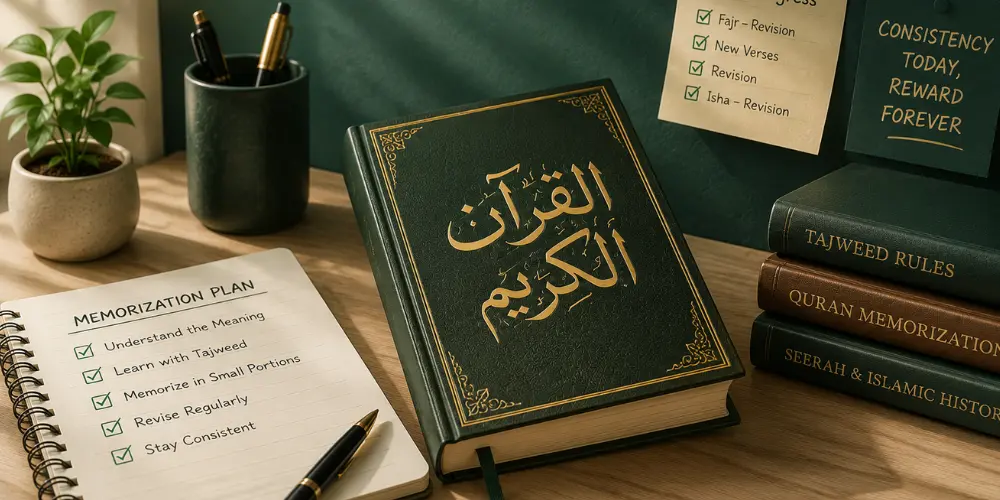 MEMORIZATION PLAN
Understand the Meaning
Learn with Tajweed
Memorize in Small Portions
Revise Regularly
Stay Consistent
القرآن
الكريم
Fajr – Revision
New Verses
Revision
Isha – Revision
CONSISTENCY
TODAY,
REWARD
FOREVER
TAJWEED RULES
QURAN MEMORIZATION
SEERAH & ISLAMIC HISTOR